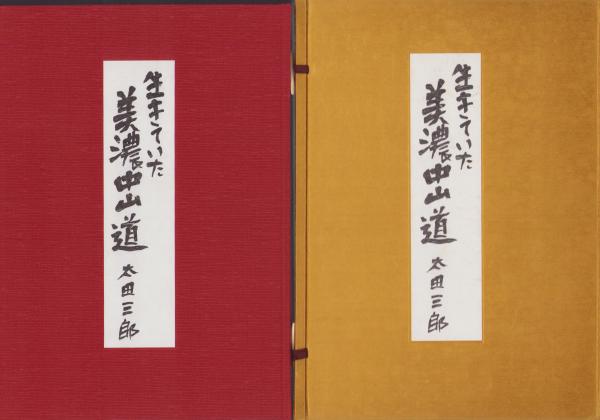 生きていた
美濃中山道
太田三郎
生きていた
美濃中山道
太田三郎